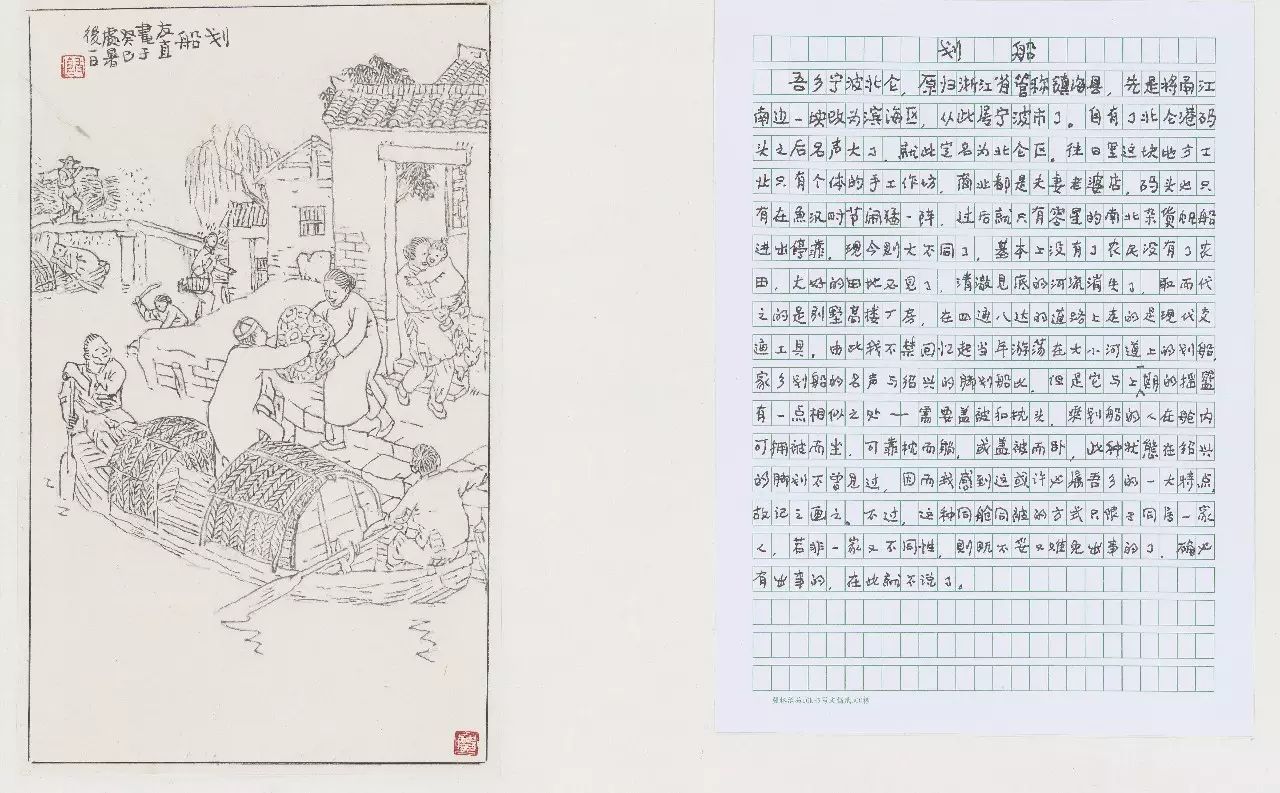 划船
友直
畫于
癸巳
處暑
後一日
划船
吾乡宁波北仑，原归浙江省管称镇海县，先是将甬江
南边一块改为滨海区，从此属宁波市了。自有了北仑港码
头之后名声大了，就此定名为北仑区。往日里这块地方工
业只有个体的手工作坊，商业都是夫妻老婆店，码头也只
有在鱼汛时节闹猛一阵，过后就只有零星的南北杂货帆船
进出停靠。现今则大不同了，基本上没有了农民没有了农
田，大好的田地不见了，清澈见底的河流消失了，取而代
之的是别墅高楼厂房，在四通八达的道路上走的是现代交
通工具。由此我不禁回忆起当年游荡在大小河道上的划船，
家乡划船的名声与绍兴的脚划船比，但是它与上 期的摇篮
有一点相似之处——需要盖被和枕头，乘划船的人在舱内
可拥被而坐，可靠枕而躺，或盖被而卧，此种状态在绍兴
的脚划不曾见过，因而我感到这或许也属吾乡的一大特点，
故记之画之。不过，这种同舱同被的方式只限于同居一家
人，若非一家又不同性，则既不妥又难免出事的了，确也
有出事的，在此就不说了。